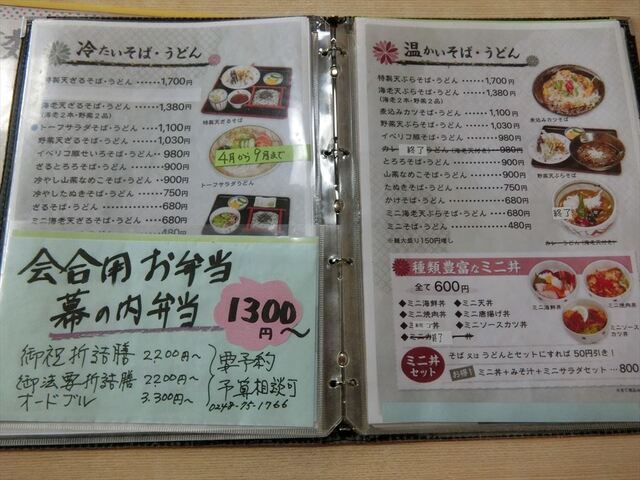 冷たいそば・うどん
特製天ざるそば・うどん ・・・・・・・1,700円
海老天ざるそば・うどん ・・・・・1,380円
(海老2本・野菜2品)
トーフサラダそば・うどん ・・・・1,100円
野菜天ざるそば・うどん ・・・・・1,030円
イベリコ豚せいろそば・うどん ・・・980円
ざるとろろそば・うどん ・・・・・900円
冷やし山菜なめこそば・うどん ・・・900円
冷やしたぬきそば・うどん ・・・・750円
ざるそば・うどん ・・・・・・・680円
ミニ海老天ざるそば・うどん ・・・・680円
特製天ざるそば
4月から9月まで
トーフサラダうどん
会合用お弁当
幕の内弁当 1300円〜
御祝折詰膳 2200円〜
御法要折詰膳 2200円〜
オードブル 3,300円〜
要予約
予算相談可
0248-75-1766
温かいそば・うどん
特製天ぷらそば・うどん ・・・・・1,700円
海老天ぷらそば・うどん ・・・・・1,380円
(海老2本・野菜2品)
煮込みカツそば・うどん ・・・・・1,100円
野菜天ぷらそば・うどん ・・・・・1,030円
イベリコ豚そば・うどん ・・・・・980円
カレー 終了 うどん(海老天付き)・・980円
とろろそば・うどん ・・・・・・900円
山菜なめこそば・うどん ・・・・・900円
たぬきそば・うどん ・・・・・・750円
かけそば・うどん ・・・・・・・680円
ミニ海老天ぷらそば・うどん ・・・・680円
ミニそば・うどん ・・・・・・・480円
※麺大盛り150円増し
煮込みカツそば
野菜天ぷらそば
終了
カレーうどん(海老天付き)
種類豊富なミニ丼
全て600円
◆ミニ海鮮丼 ◆ミニ天丼
◆ミニ焼肉丼 ◆ミニ唐揚げ丼
◆ミニソースカツ丼
終了
ミニ海鮮丼
ミニ焼肉丼
ミニソースカツ丼
ミニ丼セット
そば又はうどんとセットにすれば50円引き!
お得! ミニ丼+みそ汁+ミニサラダセット・・・800